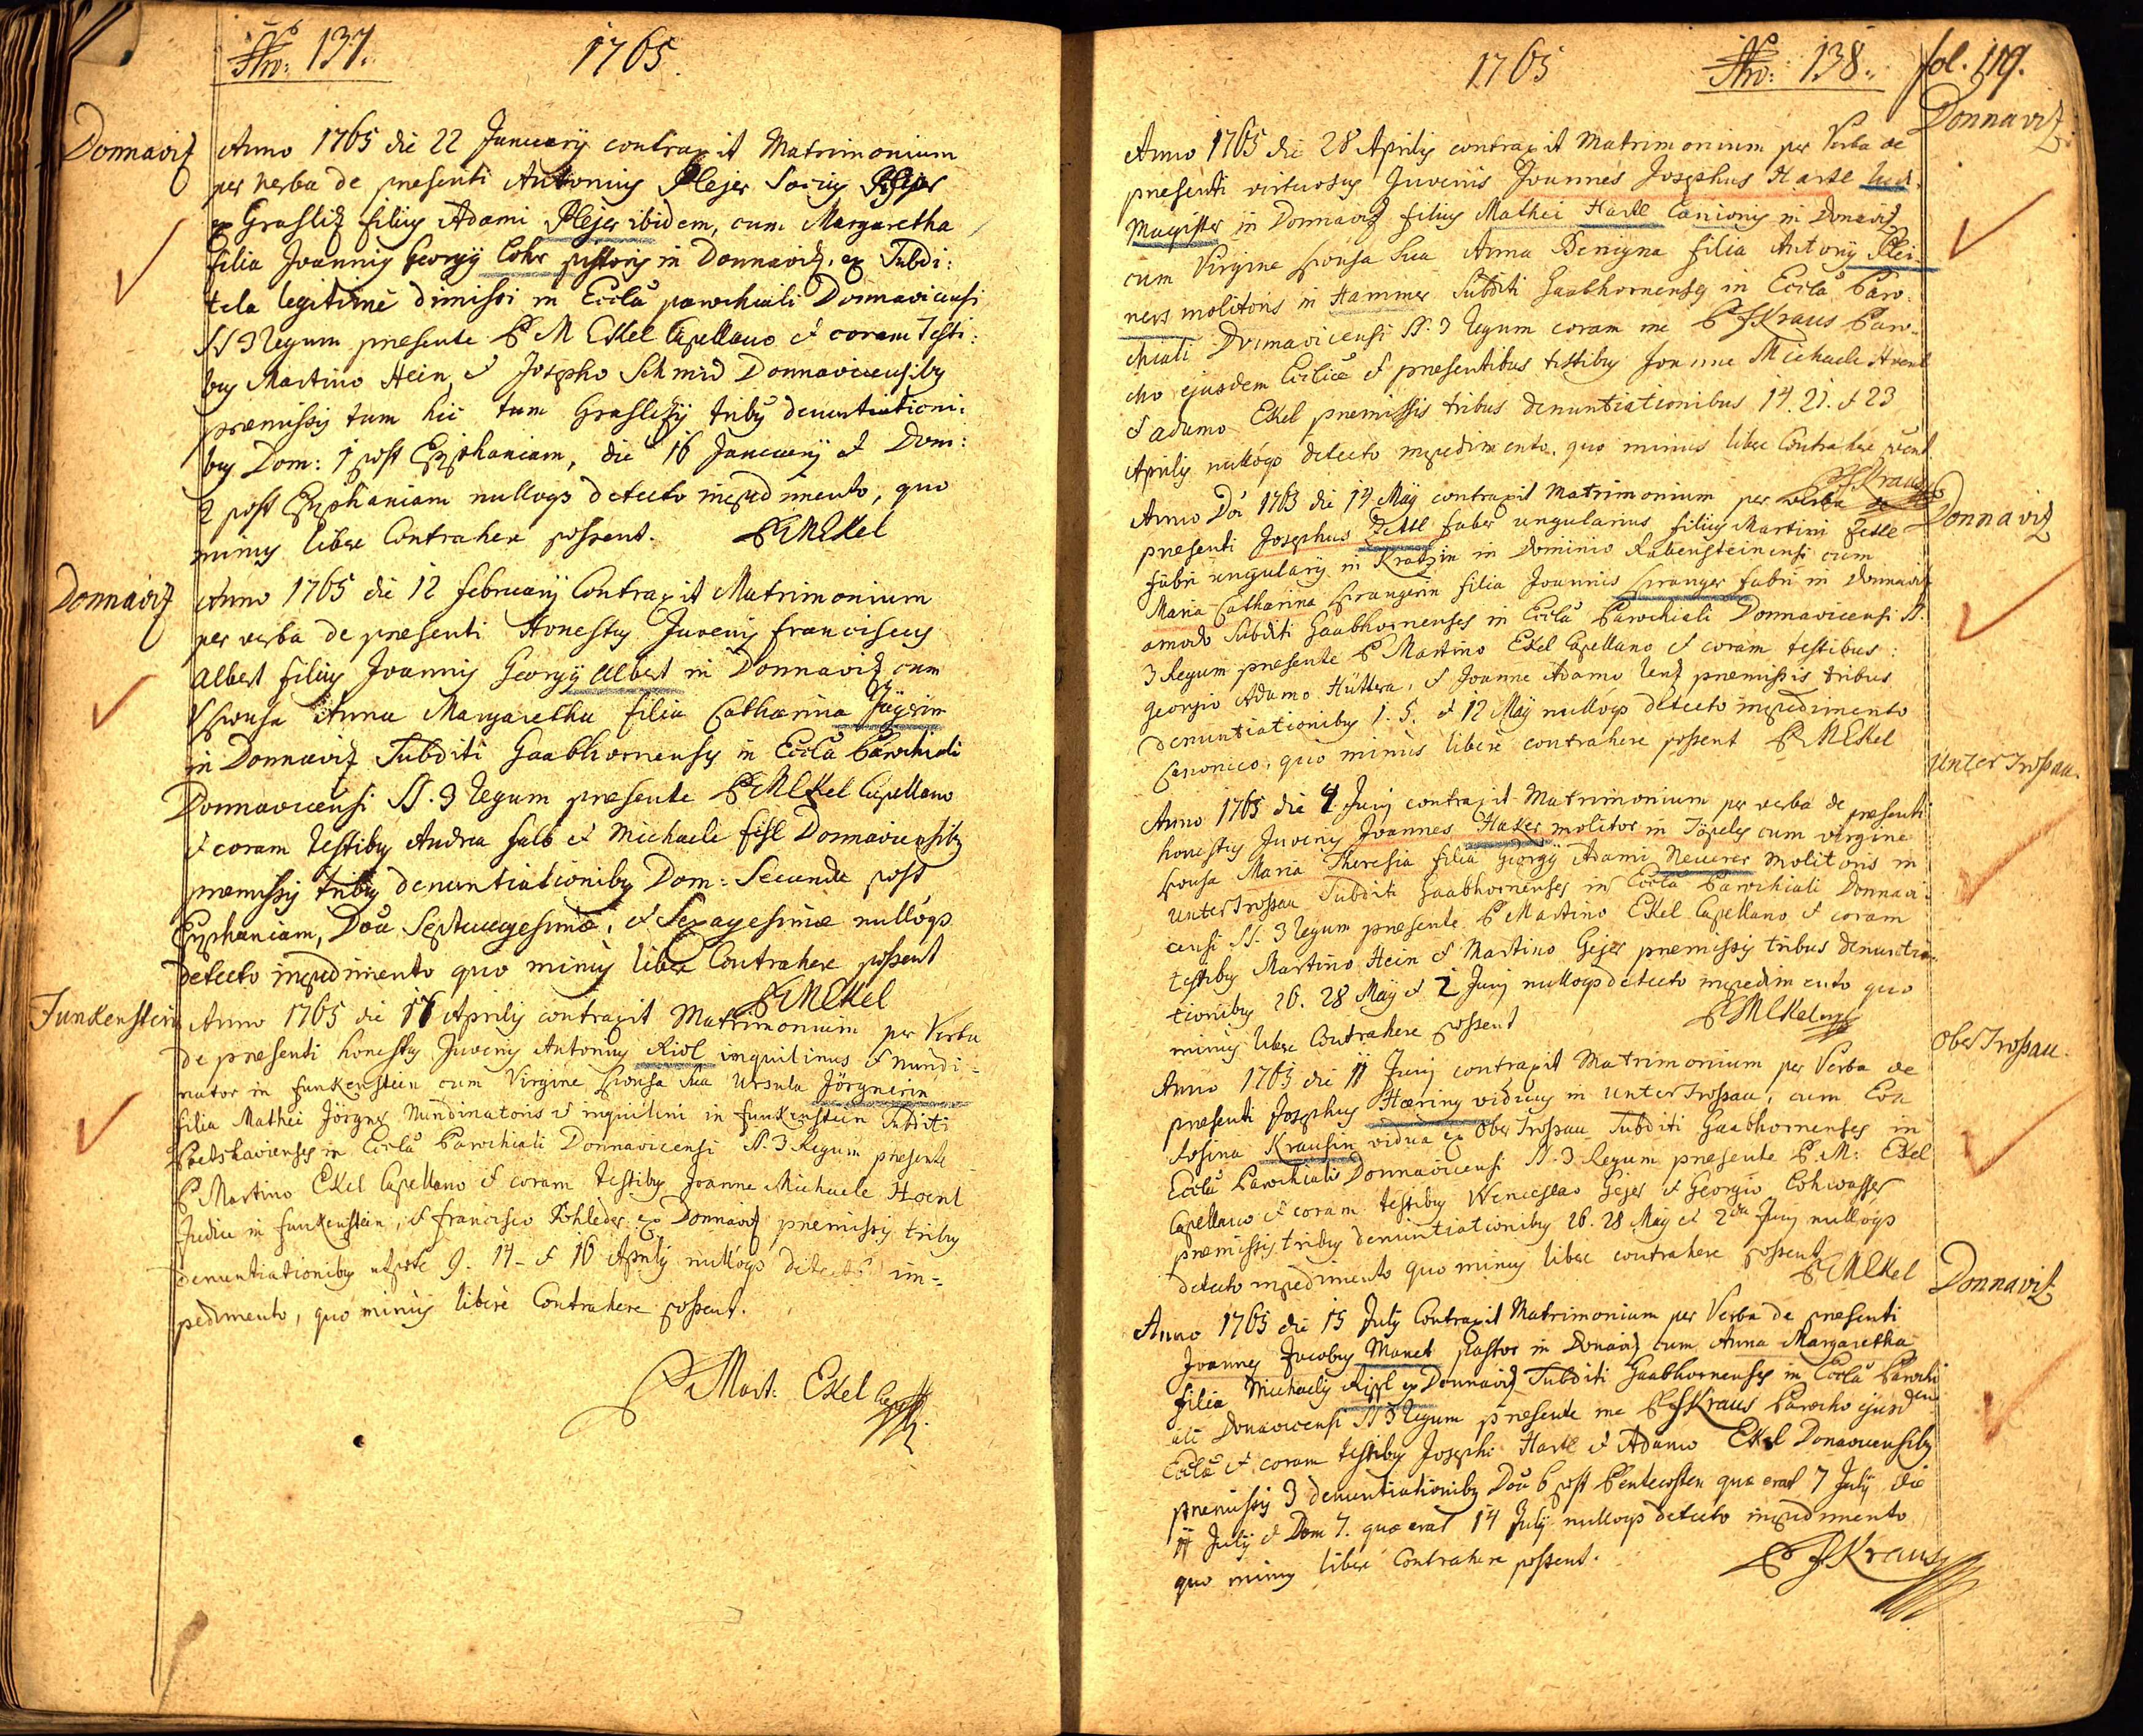 No 137.
1765.
Donnaviz
Anno 1765 die 22 Januarij contraxit Matrimonium
per verba de presenti Antonius Plejer
ex Grasliz filius Adami Plejer ibidem, cum Margaretha
filia Joannis Georgij Lohr pistoris in Donnaviz, ex Subdi:
tela legitimè dimissi in Ecclâ parochiali Donnavicensi
SS 3 Regum presente P M Ekel Capellano et coram Testi:
bus Martino Hein et Josepho Schmid Donnavicensibus
premissis tum hic tum Graslezij tribus denuntiationi:
bus Dom: 1 post Epiphaniam, die 16 Januarij et Dom:
2 post Epiphaniam nulloqs detecto impedimento, quo
minus libere Contrahere possent. P M Ekel
Donnaviz
Anno 1765 die 12 februarij Contraxit Matrimonium
per verba de presenti Honestus Juvenis franciscus
Albert filius Joannis Georgij Albert in Donnaviz cum
Sponsa Anna Margaretha filia Catharina Jägerin
in Donnaviz Subditi Gaabhornenses in Ecclâ Parochiali
Donnavicensi SS. 3 Regum presente P M Ekel Capellano
et coram testibus Andrea falb et Michaele fisl Donnavicensibus
premissis tribus denuntiationibus Dom: Secunda post
Epiphaniam, Doâ Septuagesimæ, et Sexagesimæ nulloqs
detecto impedimento quo minus libere Contrahere possent
P M Ekel
Funkenstein
Anno 1765 die 16 Aprilis contraxit Matrimonium per Verba
de presenti honestus Juvenis Antonius Riol inquilinus et nundi-
nator in funkenstein cum Virgine Sponsa sua Ursula Jörgnerin
filia Mathei Jörgner Nundinatoris et inquilini in funkenstein Subditi
in Ecclâ Parochiali Donnavicensi SS. 3 Regum presente
P Martino Ekel Capellano et coram testibus Joanne Michaele Hoenl
Judice in funkenstein, et francisco Kohleder ex Donnaviz premissis tribus
denuntiationibus utpote 9. 14 et 16 Aprilis nulloqs detecto im-
pedimento, quo minus libere Contrahere possent.
P Mart: Ekel
1765
No 138.
fol. 119.
Donnaviz
Anno 1765 die 28 Aprilis contraxit Matrimonium per Verba de
presenti virtuosus Juvenis Joannes Josephus Hartl Lud.
Magister in Donnaviz filius Mathei Hartl Lanionis in Donaviz
cum Virgine Sponsa Sua Anna Benigna filia Antonij Plei-
ners molitoris in Hammer Subditi Gaabhornenses in Ecclâ Paro.
chiali Donnavicensi SS. 3 Regum coram me P J Kraus Paro-
cho ejusdem Ecclæ et presentibus testibus Joanne Michaele Hoenl
et Adamo Ekel premissis tribus denuntiationibus 14. 21. et 23
Aprilis nulloqs detecto impedimento, quo minus libere Contrahere possent
P J Kraus
Donnaviz
Anno Doi 1765 die 14 Maij contraxit Matrimonium per verba de
presenti Josephus Zettl faber ungularius filius Martini Zettl
fabri ungularij in Kratzin in Dominio Rabensteinensi cum
Maria Catharina Sprangerin filia Joannis Spranger fabri in Donnaviz
amodo Subditi Gaabhornenses in Ecclâ Parochiali Donnavicensi SS.
3 Regum presente P Martino Ekel Capellano et coram testibus:
Georgio Adamo Hüttera, et Joanne Adamo Lenz premissis tribus
denuntiationibus 1. 5. et 12 Maij nulloqs detecto impedimento
Canonico, quo minus libere contrahere possent P M Ekel
UnterTrossau.
Anno 1765 die 4 Junij contraxit Matrimonium per verba de presenti
honestus Juvenis Joannes Haker molitor in Töpeles cum virgine
Sponsa Maria Theresia filia Georgij Adami Neuerer molitoris in
UnterTrossau Subditi Gaabhornenses in Ecclâ Parochiali Donnavi-
censi SS. 3 Regum presente P Martino Ekel Capellano et coram
testibus Martino Hein et Martino Gejer premissis tribus denuntia-
tionibus 26. 28 Maij et 2 Junij nulloqs detecto impedimento quo
minus libere Contrahere possent P M Ekel
OberTrossau.
Anno 1765 die 11 Junij contraxit Matrimonium per Verba de
presenti Josephus Hæring viduus in UnterTrossau, cum Eva
Rosina Krausin vidua ex OberTrossau Subditi Gaabhornenses in
Ecclâ Parochiali Donnavicensi SS. 3 Regum presente P. M: Ekel
Capellano et coram testibus Wenceslao Gejer et Georgio Lohwasser
premissis tribus denuntiationibus 26. 28 Maij et 2da Junij nulloqs
detecto impedimento quo minus libere contrahere possent
P M Ekel
Donnaviz
Anno 1765 die 15 Julij Contraxit Matrimonium per Verba de presenti
Joannes Jacobus Manet pastor in Donaviz cum Anna Margaretha
filia Michaelis Rippl ex Donnaviz Subditi Gaabhornenses in Ecclâ Parochi
ali Donavicensi SS 3 Regum presente me P J Kraus Parocho ejusdem
Ecclæ et coram testibus Josepho Hartl et Adamo Ekel Donavicensibus
premissis 3 denuntiationibus Doâ 6 post Pentecosten quæ erat 7 Julij die
11 Julij et Dom 7. quæ erat 14 Julij nulloqs detecto impedimento
quo minus libere Contrahere possent. P J Kraus